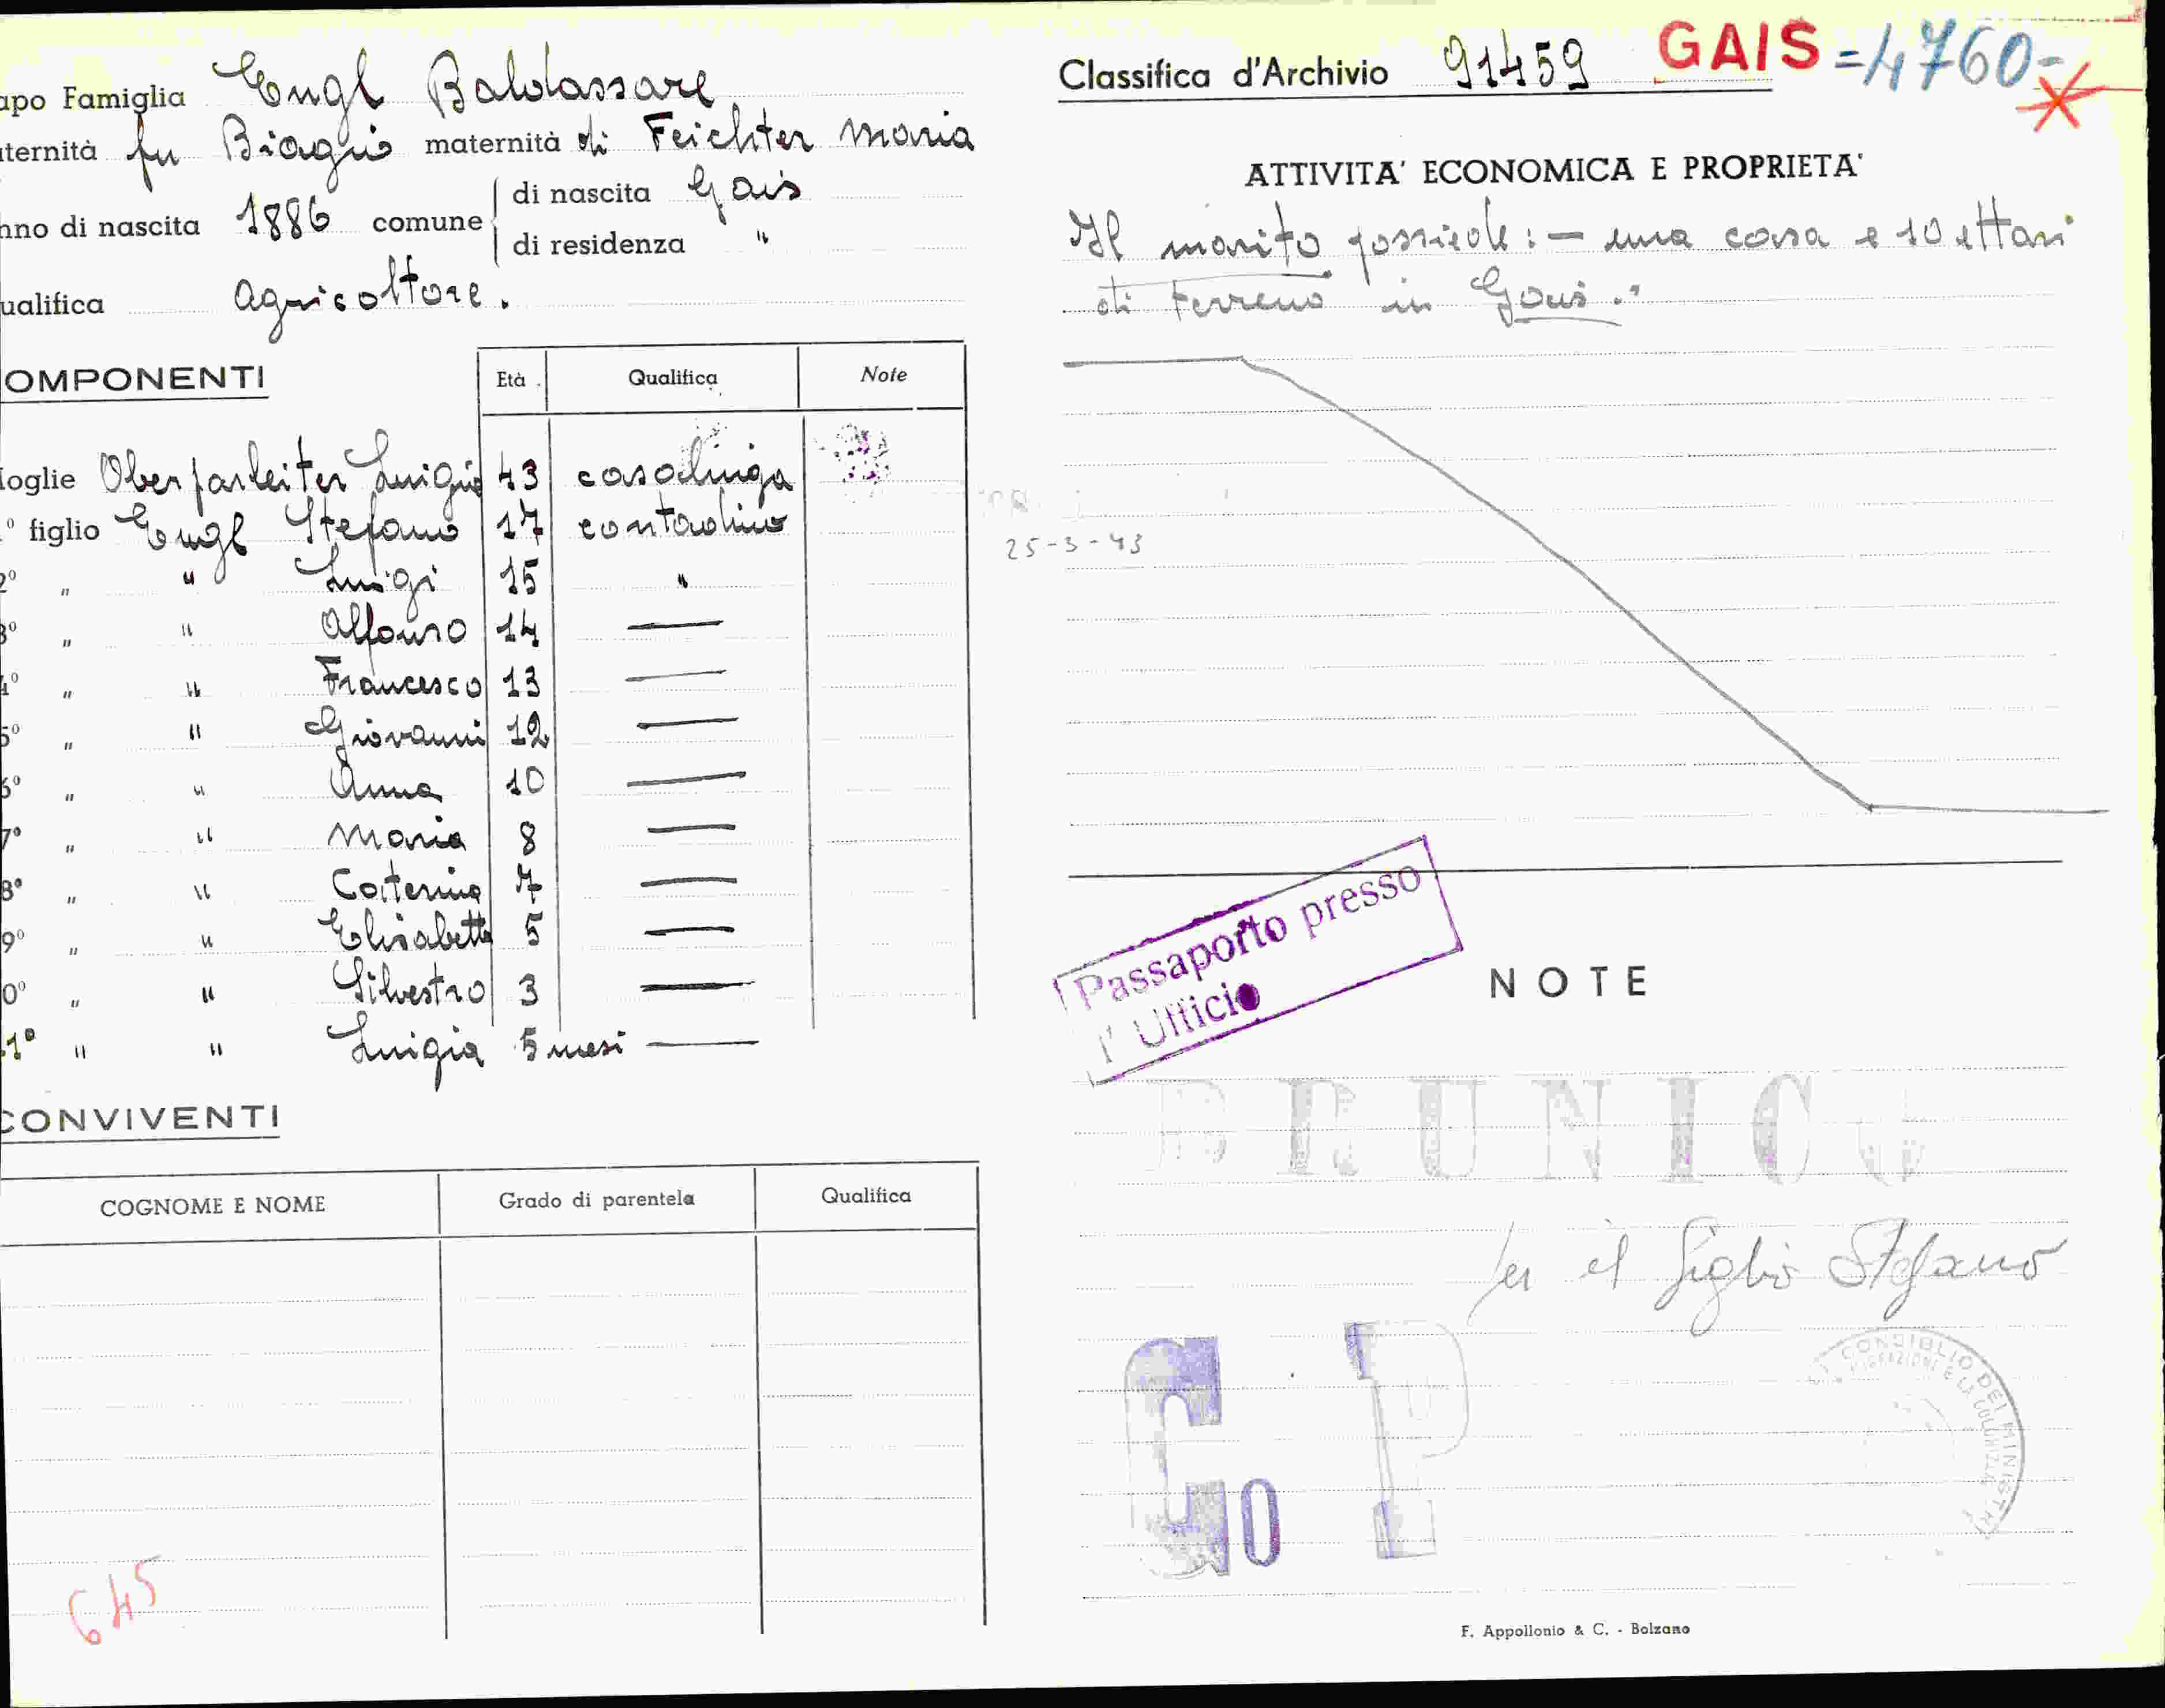 apo Famiglia Engl Baldassare
ternità fu Biagio maternità di Feichter Maria
nno di nascita 1886 comune di nascita Gais
di residenza "
ualifica agricoltore.
OMPONENTI Età Qualifica Note
loglie Oberfarleiter Luigia 43 casalinga
° figlio Engl Stefano 17 contadino
2° " " Luigi 15 "
3° " " Alfonso 14 —
4° " " Francesco 13 —
5° " " Giovanni 12 —
6° " " Anna 10 —
7° " " Maria 8 —
8° " " Catterina 7 —
9° " " Elisabetta 5 —
0° " " Silvestro 3 —
1° " " Luigia 5 mesi —
CONVIVENTI
COGNOME E NOME Grado di parentela Qualifica
645
Classifica d'Archivio 91459 GAIS =4760-
ATTIVITA' ECONOMICA E PROPRIETA'
Il marito possiede: — una casa e 10 ettari
di terreno in Gais."
25-3-43
Passaporto presso
l' Ufficio
NOTE
BRUNICO
per il figlio Stefano
G P
10
CONSIGLIO DEI MINISTRI
F. Appollonio & C. - Bolzano